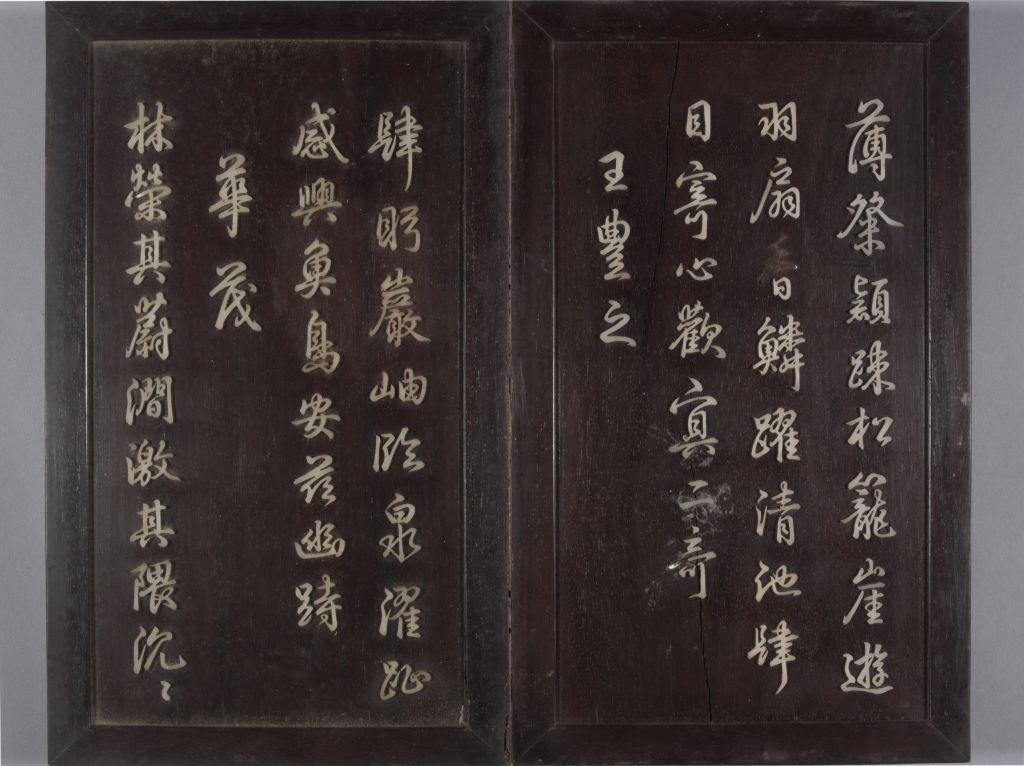 薄粲穎疎松籠崖遊
羽扇鱗躍清池肆
目寄心歡冥二奇
王豐之
肆眄巖岫臨泉濯趾
感興魚鳥安茲幽跱
華茂
林榮其蔚澗激其隈沉〻